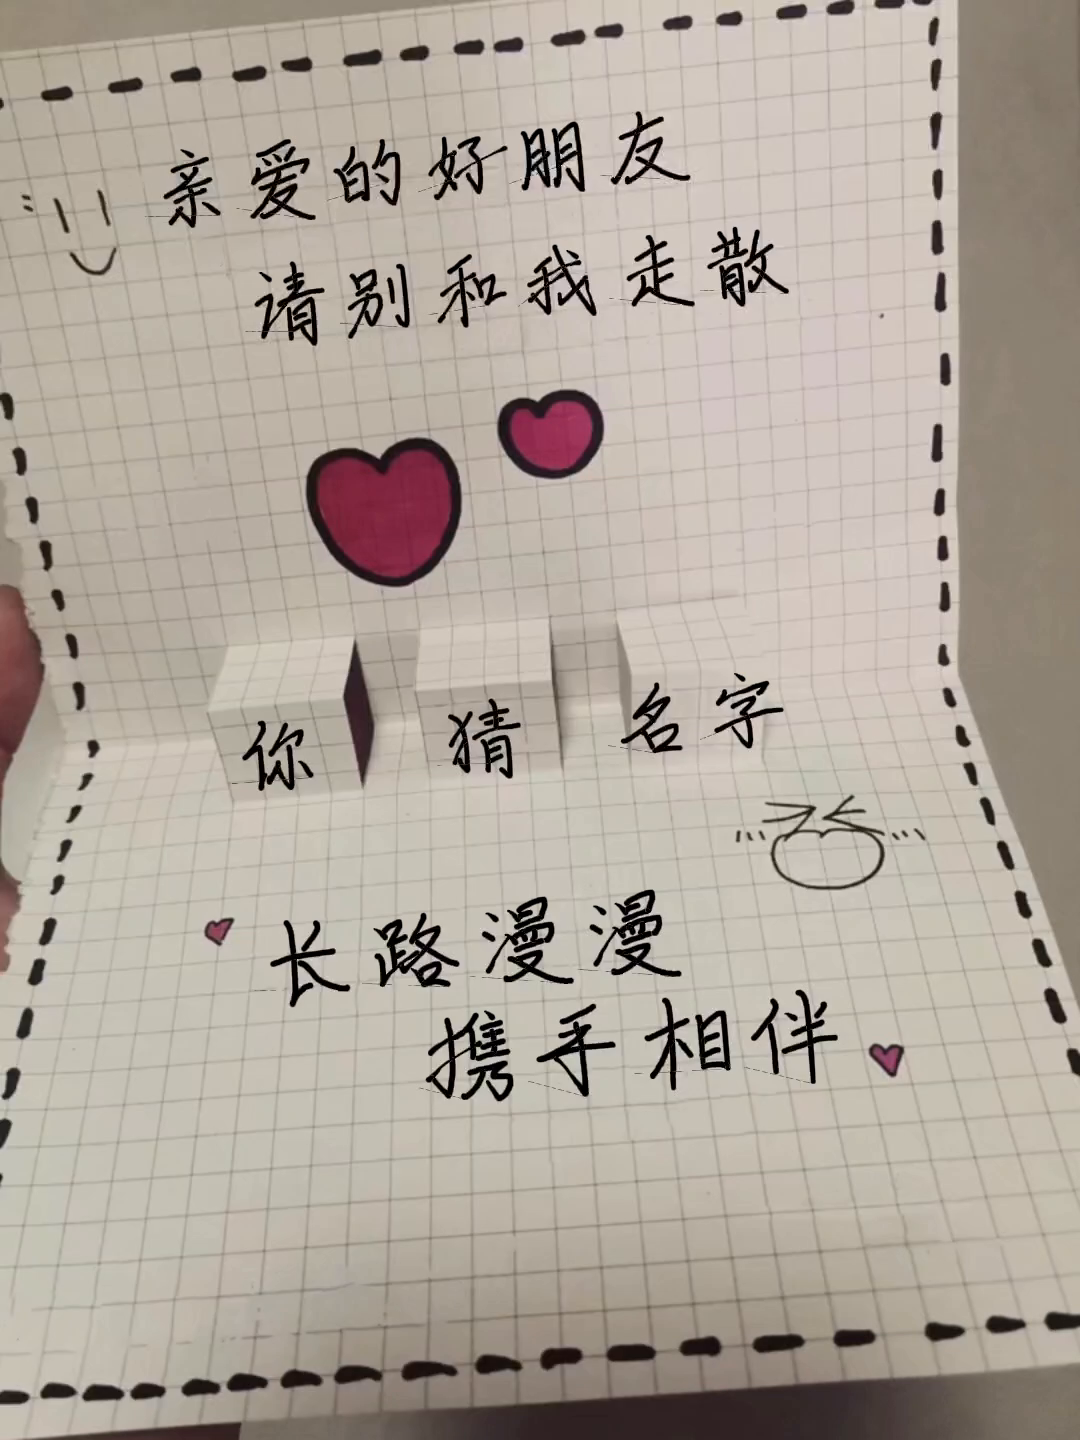 亲爱的好朋友
请别和我走散
你猜名字
长路漫漫
携手相伴